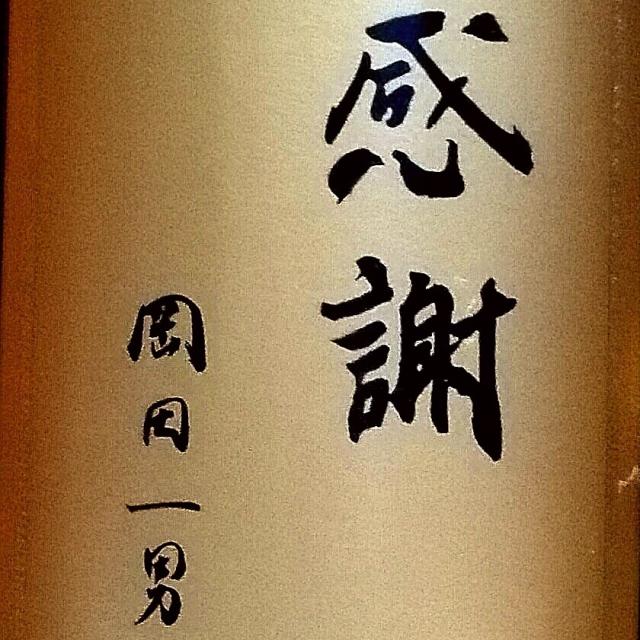 感謝
岡田一男